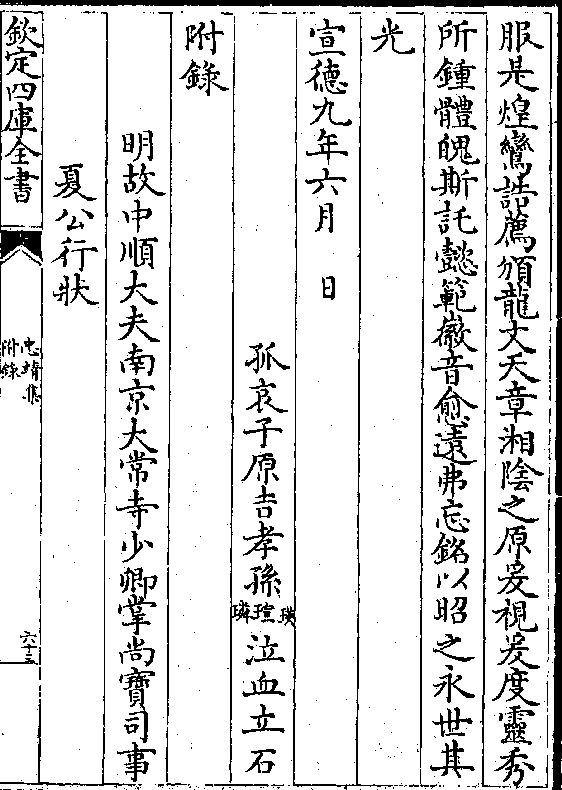 服是煌鸞誥薦頒龍文天章湘陰之原爰視爰度靈秀
所鍾體魄斯託懿範徽音愈遠弗忘銘以昭之永世其
光
宣德九年六月　日
孤哀子原吉孝孫瑛瑄璘泣血立石
附錄
明故中順大夫南京大常寺少卿掌尚寶司事
夏公行狀
欽定四庫全書
忠靖集
附錄
六十三